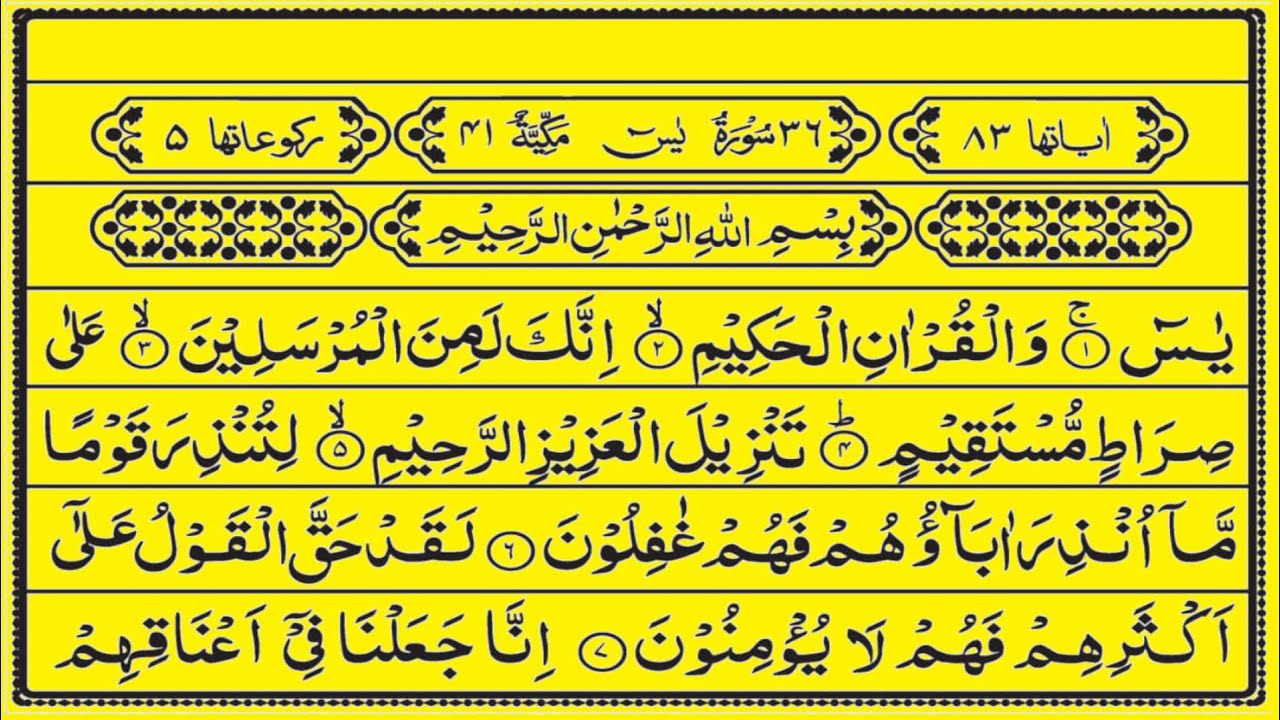 اٰیاتها ٨٣ ٣٦ سُوْرَةُ یٰسٓ مَكِّیَّةٌ ٤١ ركوعاتها ٥
بِسْمِ اللّٰهِ الرَّحْمٰنِ الرَّحِیْمِ
یٰسٓ ۚ﴿١﴾ وَالْقُرْاٰنِ الْحَكِیْمِ ۙ﴿٢﴾ اِنَّكَ لَمِنَ الْمُرْسَلِیْنَ ۙ﴿٣﴾ عَلٰی
صِرَاطٍ مُّسْتَقِیْمٍ ؕ﴿۴﴾ تَنْزِیْلَ الْعَزِیْزِ الرَّحِیْمِ ۙ﴿۵﴾ لِتُنْذِرَ قَوْمًا
مَّاۤ اُنْذِرَ اٰبَآؤُهُمْ فَهُمْ غٰفِلُوْنَ ﴿۶﴾ لَقَدْ حَقَّ الْقَوْلُ عَلٰۤی
اَكْثَرِهِمْ فَهُمْ لَا یُؤْمِنُوْنَ ﴿۷﴾ اِنَّا جَعَلْنَا فِیْۤ اَعْنَاقِهِمْ